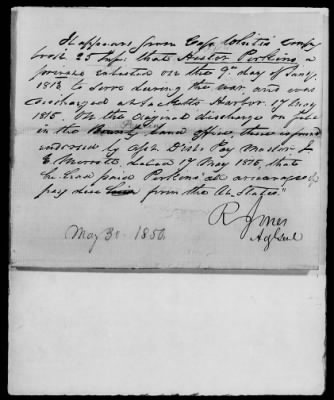 It appears from Capt. White's Comp
25 Inf. that Hester Perkins, a
private enlisted on the 9th day of Jany
1813 to serve during the war, and was
discharged at Sacketts Harbor 17 May
1815. On the original discharge on file
in the Bounty Land office, there is found
endorsed by Asst. Dist. Pay Master J.
E. 17 May 1815, that
he had paid Perkins all arrearages of
pay due him from the U. States."
R. Jones
Ag
May 31 1850.